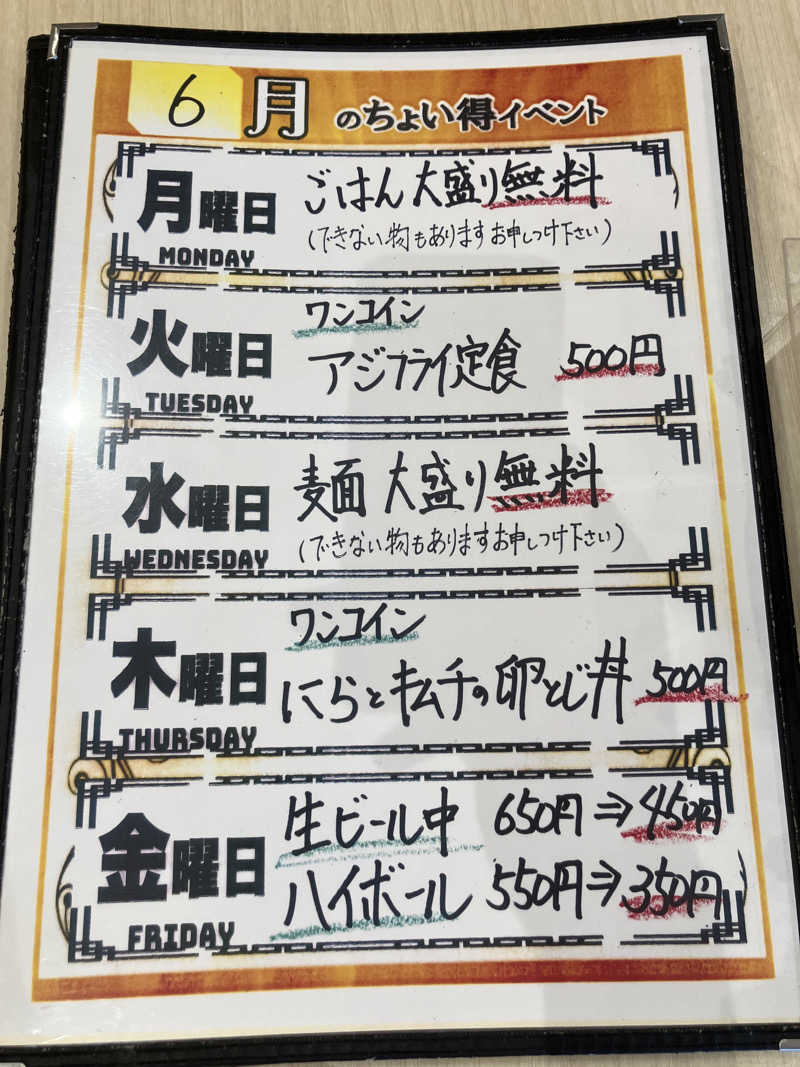 6月のちょい得イベント
月曜日 ごはん大盛り無料
(できない物もありますお申しつけ下さい)
MONDAY
ワンコイン
火曜日 アジフライ定食 500円
TUESDAY
水曜日 麦面 大盛り無料
(できない物もありますお申しつけ下さい)
WEDNESDAY
ワンコイン
木曜日 にらとキムチの卵とじ丼 500円
THURSDAY
生ビール中 650円⇒450円
金曜日
ハイボール 550円⇒350円
FRIDAY